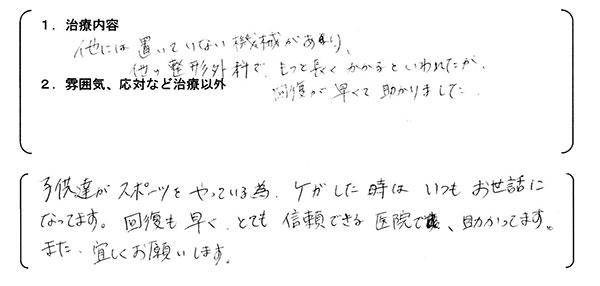 1. 治療内容
他には置いていない機械があり、
他の整形外科で、もっと長くかかるといわれたが、
2. 雰囲気、応対など治療以外
回復が早くて助かりました
子供達がスポーツをやっている為、ケガした時はいつもお世話に
なってます。回復も早く、とても信頼できる医院で、助かってます。
また、宜しくお願いします。